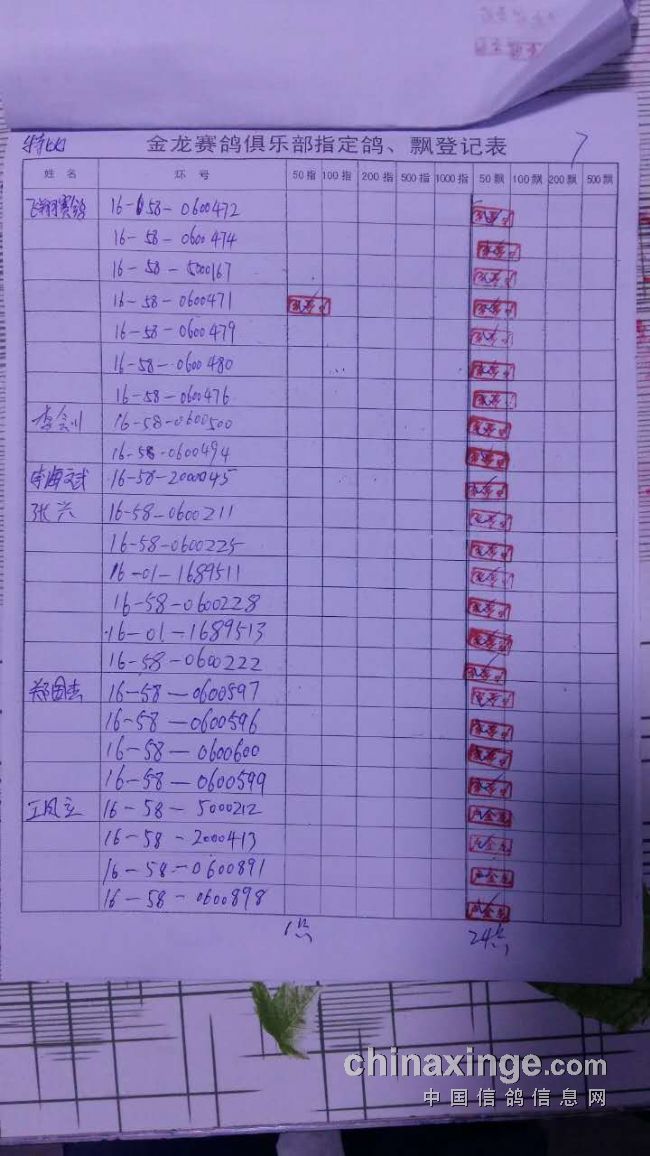 特比 金龙赛鸽俱乐部指定鸽、飘登记表 7
姓名 环号 50指 100指 200指 500指 1000指 50飘 100飘 200飘 500飘
飞翔赛鸽 16-58-0600472
16-58-0600474
16-58-5000167
16-58-0600471
16-58-0600479
16-58-0600480
16-58-0600476
李会川 16-58-0600500
16-58-0600494
16-58-2000045
张兴 16-58-0600211
16-58-0600225
16-01-1689511
16-58-0600228
16-01-1689513
16-58-0600222
郑国志 16-58-0600597
16-58-0600596
16-58-0600600
16-58-0600599
王凤立 16-58-5000212
16-58-2000413
16-58-0600891
16-58-0600898
1 24
chinaxinge.com
中国信鸽信息网